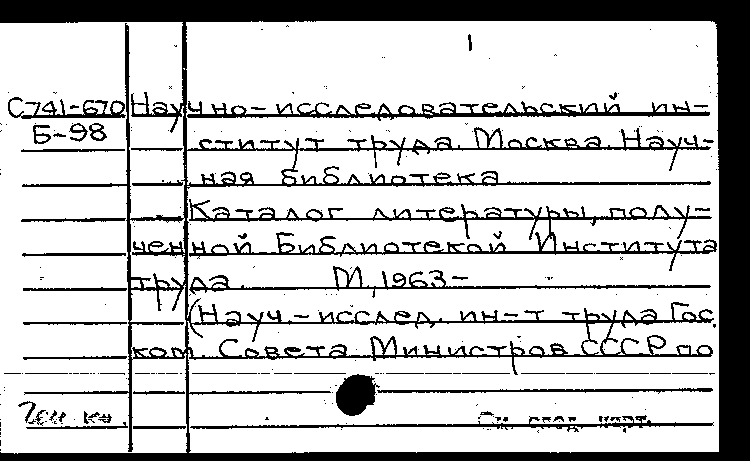 1
С741-670 Научно-исследовательский ин-
Б-98 ститут труда. Москва. Науч-
ная библиотека
Каталог литературы, полу-
ченной Библиотекой Института
труда. М., 1963-
(Науч.-исслед. ин-т труда Гос.
ком. Совета Министров СССР по
См. след. карт.